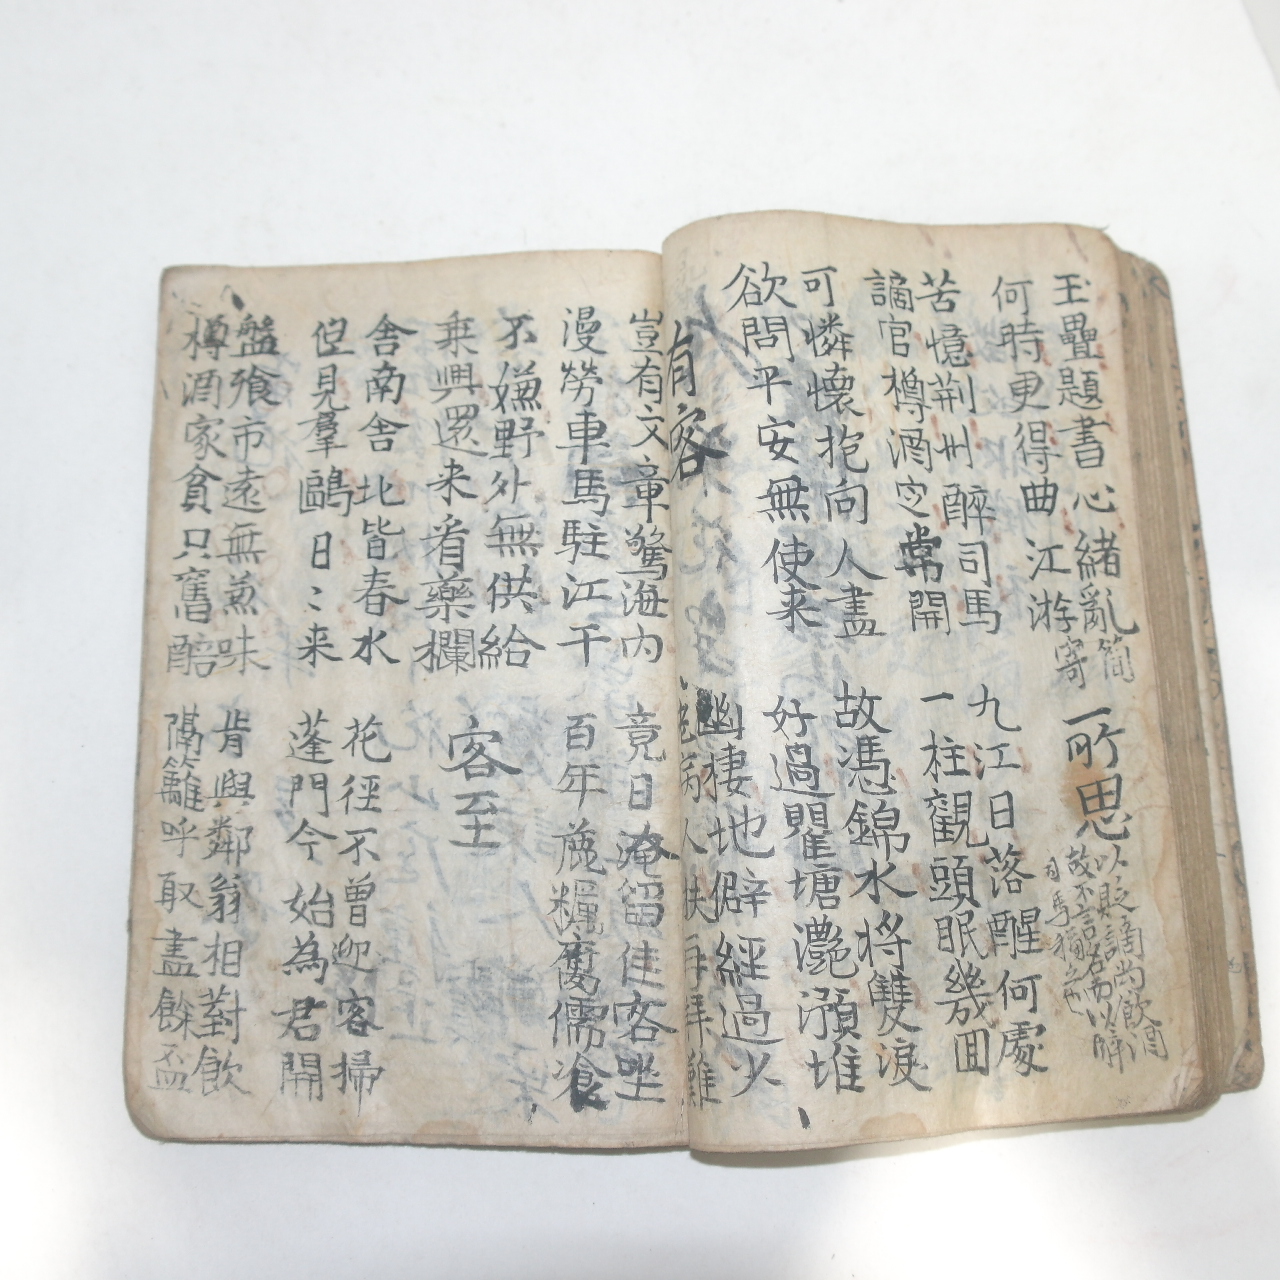 玉壘題書心緒亂
何時更得曲江游
簡
寄
所思
以貶謫尚飲酒
故不言名而以醉
司馬稱之也
苦憶荆州醉司馬
謫官樽酒定常開
九江日落醒何處
一柱觀頭眠幾回
可憐懷抱向人盡
欲問平安無使来
故憑錦水將雙淚
好過瞿塘灔澦堆
有客
幽棲地僻經過少
病人扶再拜難
豈有文章驚海内
漫勞車馬駐江干
竟日淹留佳客坐
百年麄糲腐儒飡
不嫌野外無供給
乗興還来看藥欄
客至
舍南舍北皆春水
但見羣鷗日〻来
花徑不曾迎客掃
蓬門今始為君開
盤飱市遠無兼味
樽酒家貧只舊醅
肯與鄰翁相對飲
隔籬呼取盡餘盃